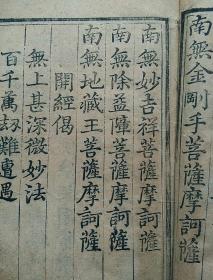 南無金剛手菩薩摩訶薩
南無妙吉祥菩薩摩訶薩
南無除盖障菩薩摩訶薩
南無地藏王菩薩摩訶薩
開經偈
無上甚深微妙法
百千萬劫難遭遇